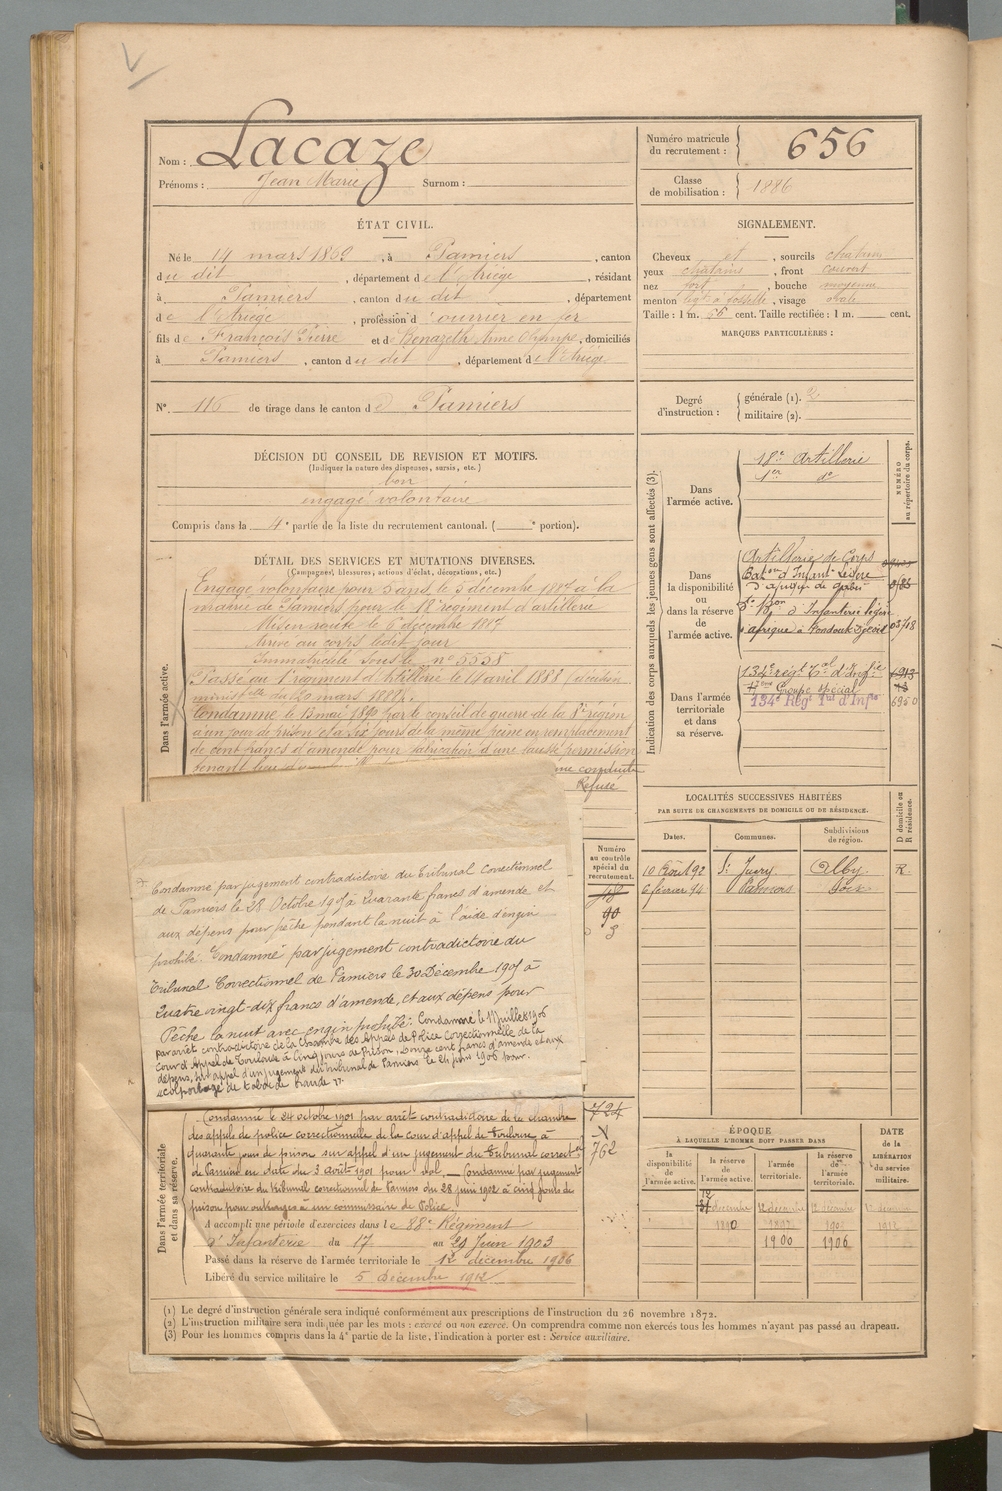 Nom : Lacaze
Prénoms : Jean Marie Surnom :
Numéro matricule du recrutement : 656
Classe de mobilisation : 1886
ÉTAT CIVIL.
Né le 14 mars 1869, à Pamiers, canton
du dit, département de l'Ariège, résidant
à Pamiers, canton du dit, département
de l'Ariège, profession d'ouvrier en fer
fils de François Pierre et de Benazeth Anne Olympe, domiciliés
à Pamiers, canton du dit, département de l'Ariège
N° 116 de tirage dans le canton de Pamiers
SIGNALEMENT.
Cheveux et, sourcils chatains
yeux chatains, front couvert
nez fort, bouche moyenne
menton à fossette, visage ovale
Taille : 1 m. 66 cent. Taille rectifiée : 1 m. cent.
MARQUES PARTICULIÈRES :
Degré d'instruction : générale (1). 2
militaire (2).
DÉCISION DU CONSEIL DE REVISION ET MOTIFS.
(Indiquer la nature des dispenses, sursis, etc.)
bon
engagé volontaire
Compris dans la 4e partie de la liste du recrutement cantonal. ( e portion).
DÉTAIL DES SERVICES ET MUTATIONS DIVERSES.
(Campagnes, blessures, actions d'éclat, décorations, etc.)
Dans l'armée active.
Engagé volontaire pour 5 ans, le 5 décembre 1887 à la
mairie de Pamiers pour le 18e régiment d'artillerie
Mis en route le 6 décembre 1887
Arrivé au corps ledit jour
Immatriculé sous le n° 5558
Passé au 1er régiment d'Artillerie le 14 avril 1888 (décision
ministelle du 20 mars 1888).
Condamné le 13 mai 1890 par le conseil de guerre de la 8e région
à un jour de prison et à six jours de la même peine en remplacement
de cent francs d'amende pour fabrication d'une fausse permission
tenant lieu
conduite
Refusé
Condamné par jugement contradictoire du Tribunal Correctionnel
de Pamiers le 28 Octobre 1905 à Quarante francs d'amende et
aux dépens pour pêche pendant la nuit à l'aide d'engin
prohibé. Condamné par jugement contradictoire du
Tribunal Correctionnel de Pamiers le 30 Décembre 1905 à
Quatre vingt-dix francs d'amende, et aux dépens pour
Pêche la nuit avec engin prohibé. Condamné le 11 juillet 1906
par arrêt contradictoire de la Chambre des Appels de Police Correctionnelle de la
cour d'Appel de Toulouse à Cinq jours de Prison, cent francs d'amende et aux
dépens, sur appel d'un jugement du tribunal de Pamiers le 21 juin 1906 pour
"colportage de tabac de fraude".
Dans l'armée territoriale et dans sa réserve.
Condamné le 24 octobre 1901 par arrêt contradictoire de la chambre
des appels de police correctionnelle de la cour d'appel de Toulouse à
quarante jours de prison sur appel d'un jugement du Tribunal correctel
de Pamiers en date du 3 août 1901 pour vol. — Condamné par jugement
contradictoire du tribunal correctionnel de Pamiers du 28 juin 1902 à cinq jours de
prison pour outrages à un commissaire de Police.
A accompli une période d'exercices dans le 88e Régiment
d'Infanterie du 17 au 29 Juin 1903
Passé dans la réserve de l'armée territoriale le 12 décembre 1906
Libéré du service militaire le 5 décembre 1912
Indication des corps auxquels les jeunes gens sont affectés (3).
NUMÉRO au répertoire du corps.
Dans l'armée active.
18e Artillerie
1er do
Dans la disponibilité ou dans la réserve de l'armée active.
Artillerie de Corps
Baton d'Infant Légère
d'afrique de Gabès
5e Bon d'Infanterie légère
d'afrique à
03718
Dans l'armée territoriale et dans sa réserve.
134e régt Tal d'Infie
Groupe spécial
134e Régt Tal d'Infie
1913
6950
LOCALITÉS SUCCESSIVES HABITÉES
PAR SUITE DE CHANGEMENTS DE DOMICILE OU DE RÉSIDENCE.
D domicile ou R résidence.
Dates. Communes. Subdivisions de région.
10 Août 92 St Juery Alby R.
6 février 94 Pamiers
Numéro au contrôle spécial du recrutement.
98
90
3
724
762
ÉPOQUE
À LAQUELLE L'HOMME DOIT PASSER DANS
DATE de la LIBÉRATION du service militaire.
la disponibilité de l'armée active.
la réserve de l'armée active.
l'armée territoriale.
la réserve de l'armée territoriale.
12
31 décembre 12 décembre 12 décembre
1890
1900 1906
(1) Le degré d'instruction générale sera indiqué conformément aux prescriptions de l'instruction du 26 novembre 1872.
(2) L'instruction militaire sera indiquée par les mots : exercé ou non exercé. On comprendra comme non exercés tous les hommes n'ayant pas passé au drapeau.
(3) Pour les hommes compris dans la 4e partie de la liste, l'indication à porter est : Service auxiliaire.